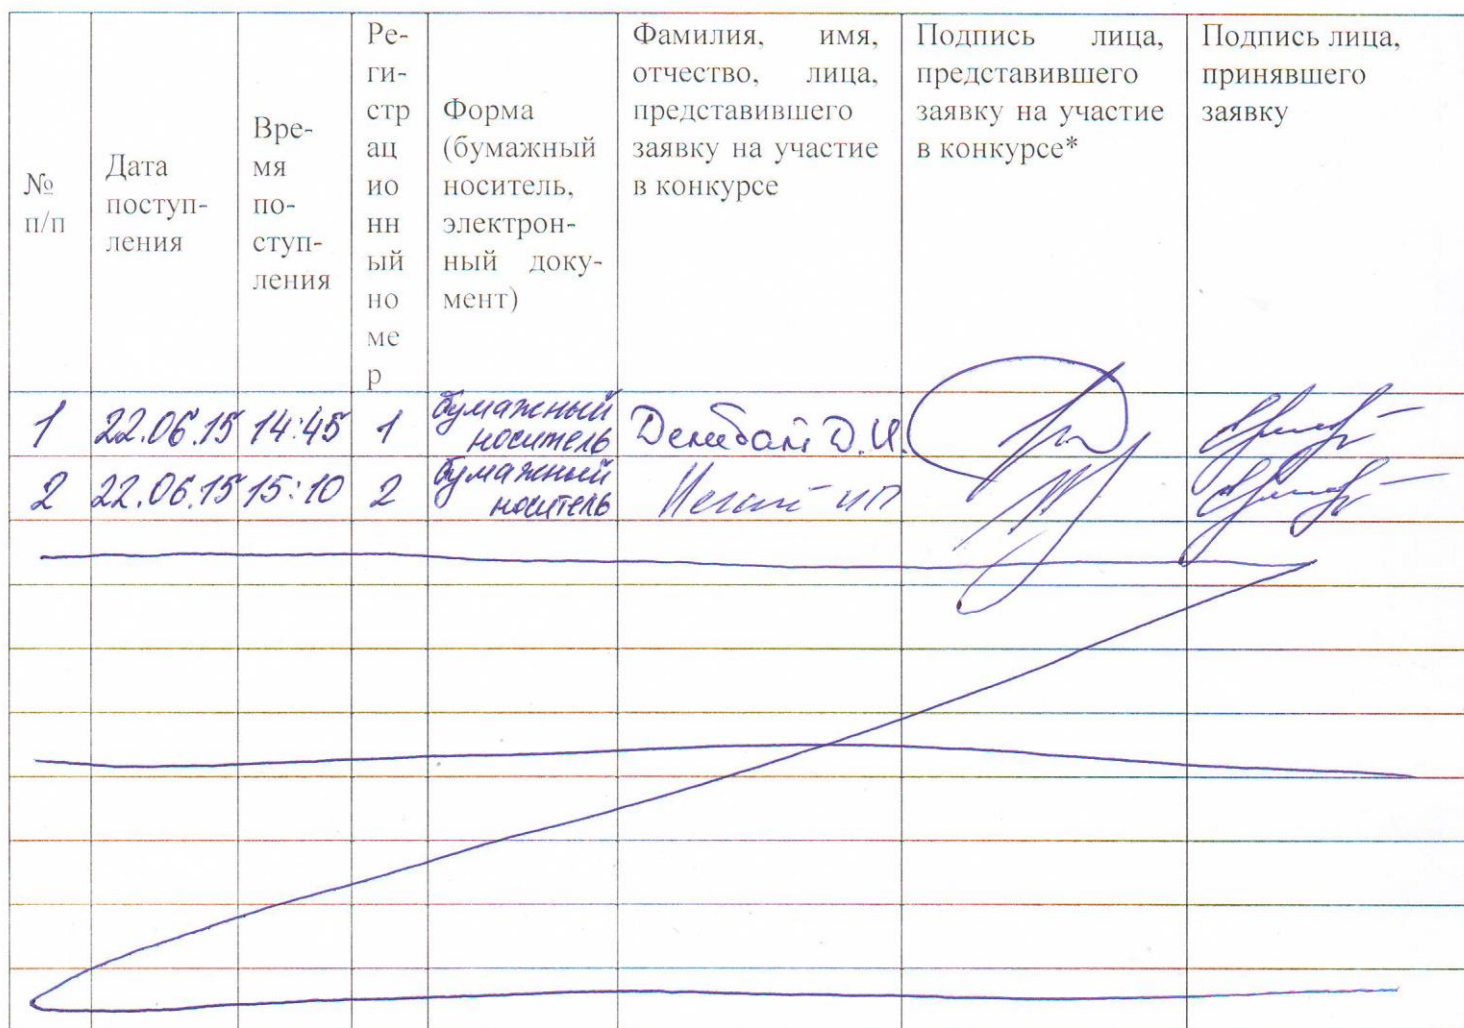 №
п/п
Дата
поступ-
ления
Вре-
мя
по-
ступ-
ления
Ре-
ги-
стр
ац
ио
нн
ый
но
ме
р
Форма
(бумажный
носитель,
электрон-
ный доку-
мент)
Фамилия, имя,
отчество, лица,
представившего
заявку на участие
в конкурсе
Подпись лица,
представившего
заявку на участие
в конкурсе*
Подпись лица,
принявшего
заявку
1 22.06.15 14:45 1 бумажный
носитель
2 22.06.15 15:10 2 бумажный
носитель